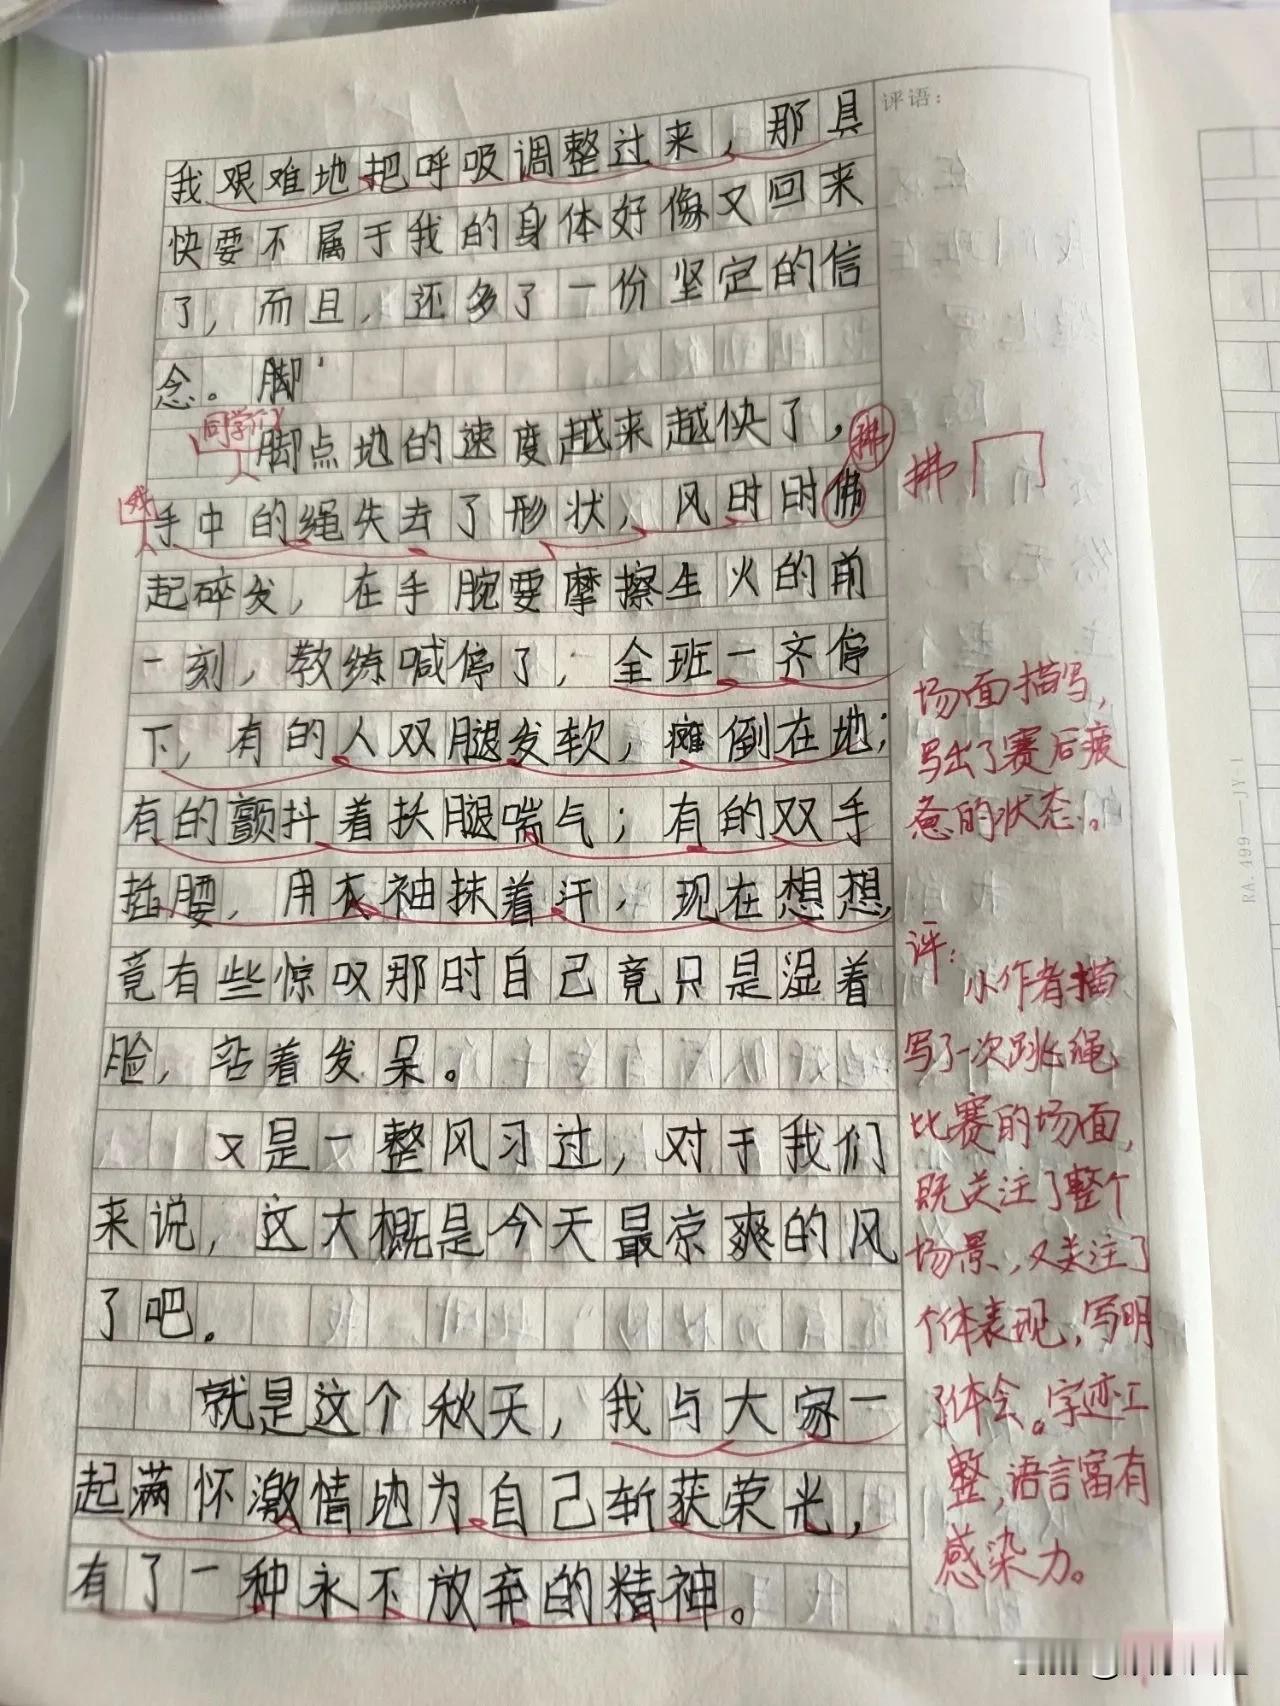 评语：
我艰难地把呼吸调整过来，那具
快要不属于我的身体好像又回来
了，而且，还多了一份坚定的信
念。脚
同学们
脚点地的速度越来越快了，
拂
拂
我
手中的绳失去了形状，风时时佛
起碎发，在手腕要摩擦生火的前
一刻，教练喊停了，全班一齐停
下，有的人双腿发软，瘫倒在地；
有的颤抖着扶腿喘气；有的双手
插腰，用衣袖抹着汗，现在想想，
竟有些惊叹那时自己竟只是湿着
脸，站着发呆。
又是一整风习过，对于我们
来说，这大概是今天最凉爽的风
了吧。
就是这个秋天，我与大家一
起满怀激情地为自己斩获荣光，
有了一种永不放弃的精神。
场面描写，
写出了赛后疲
惫的状态。
评：
小作者描
写了一次跳绳
比赛的场面，
既关注了整个
场景，又关注了
个体表现，写明
了体会。字迹工
整，语言富有
感染力。
RA.499—JY-1